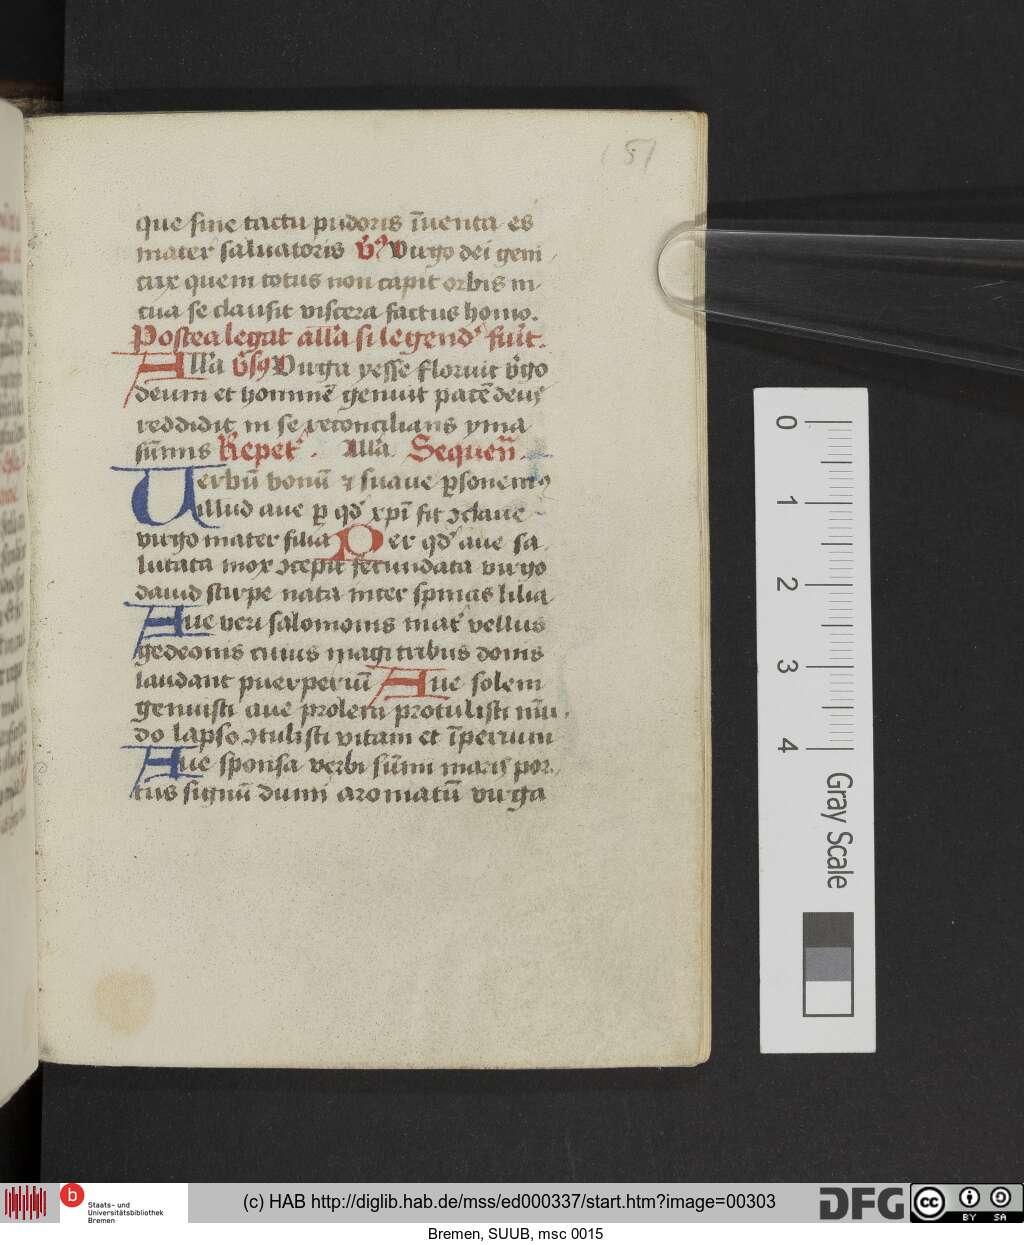 151
que sine tactu pudoris īuenta es
mater saluatoris v̓s Virgo dei geni
trix quem totus non capit orbis in
tua se clausit viscera factus homo.
Postea legat̄ all̄a si legend̓ fuīt.
All̄a v̄s Virga yesse floruit v̓go
deum et hominē genuit pacē deus
reddidit in se reconcilians yma
sūmis Repet̓. All̄a Sequen̄
Uerbū bonū ⁊ suaue ꝑsonem⁹
illud aue ꝑ qd̓ xp̄i fit ↄclaue
virgo mater filia Per qd̓ aue sa
lutata mox ↄcepit fecundata virgo
dauid stirpe nata inter spinas lilia
Aue veri salomonis mat̓ vellus
gedeonis cuius magi tribus donis
laudant puerperiū Aue solem
genuisti aue prolem protulisti mū
do lapso ↄtulisti vitam et īperium
Aue sponsa verbi sūmi maris por
tus signū dumi aromatū virga
0
1
2
3
4
Gray Scale
b
Staats- und
Universitätsbibliothek
Bremen
(c) HAB http://diglib.hab.de/mss/ed000337/start.htm?image=00303
DFG
cc BY SA
Bremen, SUUB, msc 0015